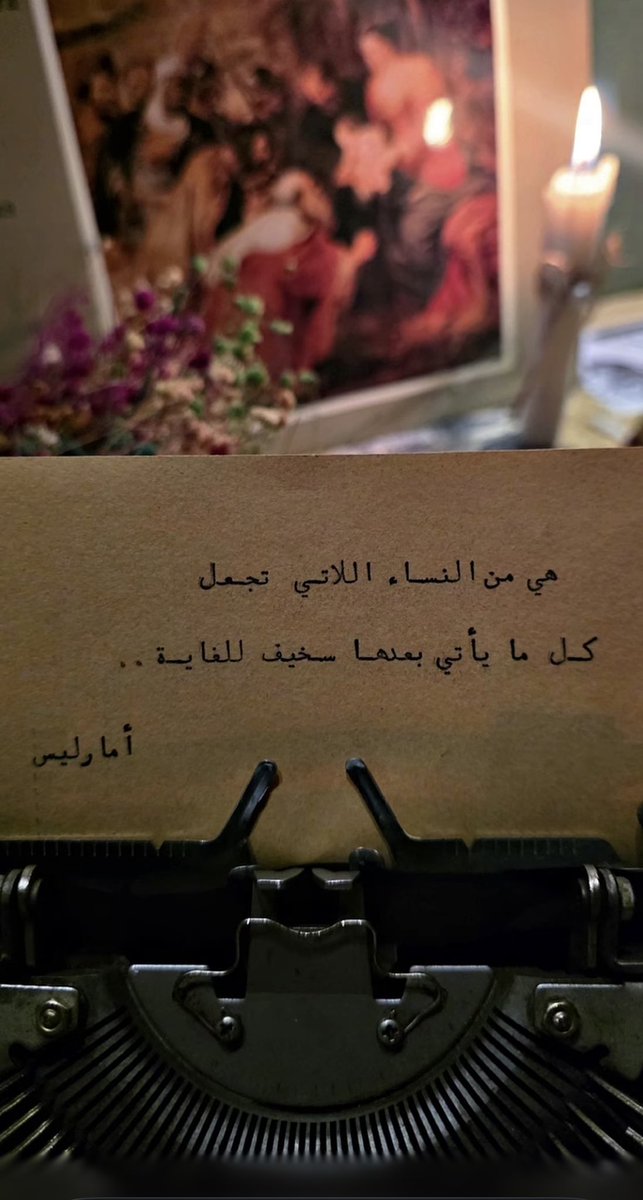 هي من النساء اللاتي تجعل
كل ما يأتي بعدها سخيف للغاية..
أمارليس